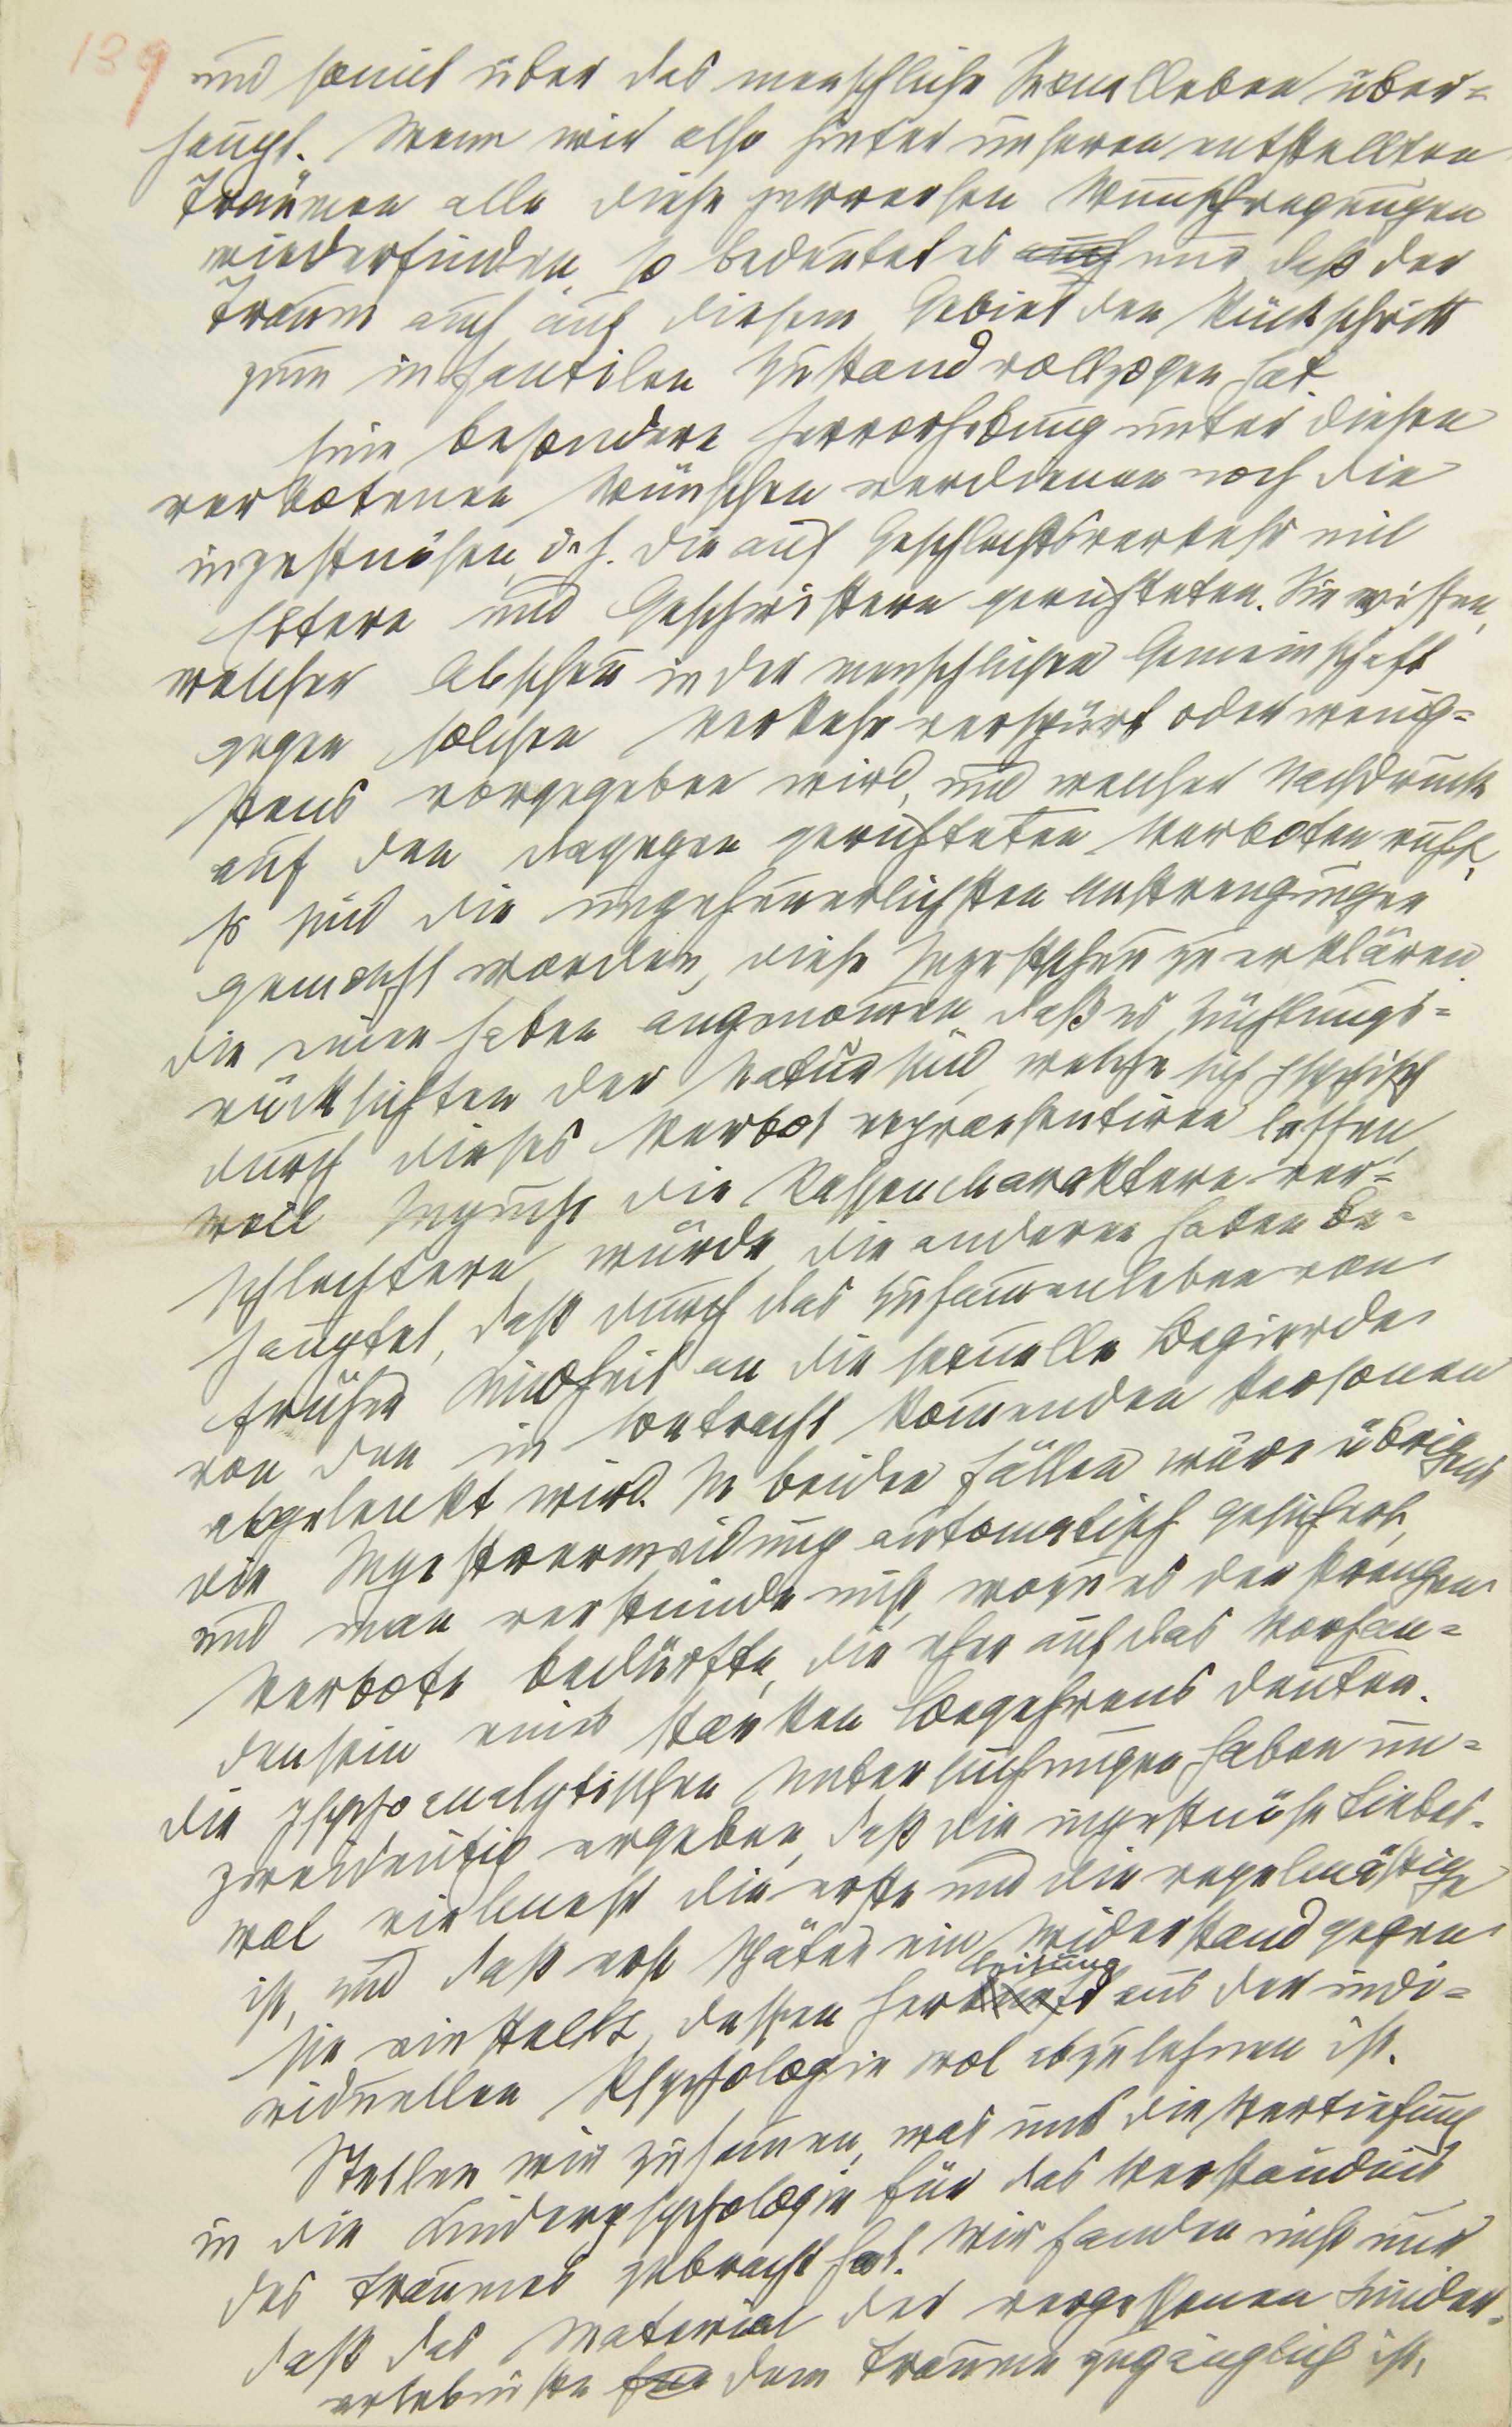 139
und somit über das menschliche Sexualleben über=
haupt. Wenn wir also hinter unseren entstellten
Träumen alle diese perversen Wunschregungen
wiederfinden, so bedeutet es auch nur, daß der
Traum auch auf diesem Gebiet den Rückschritt
zum infantilen Zustand vollzogen hat.
Eine besondere Hervorhebung unter diesen
verbotenen Wünschen verdienen noch die
inzestuösen, d. h. die auf Geschlechtsverkehr mit
Eltern und Geschwistern gerichteten. Sie wissen,
welcher Abscheu in der menschlichen Gemeinschaft
gegen solchen Verkehr verspürt oder wenig=
stens vorgegeben wird, und welcher Nachdruck
auf den dagegen gerichteten Verboten ruht.
Es sind die ungeheuerlichsten Anstrengungen
gemacht worden, diese Inzestscheu zu erklären.
Die einen haben angenommen, daß es Züchtungs=
rücksichten der Natur sind, welche sich psychisch
durch dieses Verbot repraesentiren lassen,
weil Inzucht die Rassencharaktere ver=
schlechtern würde, die anderen haben be=
hauptet, daß durch das Zusammenleben von
früher Kindheit an die sexuelle Begierde
von den in Betracht kommenden Personen
abgelenkt wird. In beiden Fällen wäre übrigens
die Inzestvermeidung automatisch gesichert,
und man verstünde nicht, wozu es der strengen
Verbote bedürfte, die eher auf das Vorhan=
densein eines starken Begehrens deuten.
Die psychoanalytischen Untersuchungen haben un=
zweideutig ergeben, daß die inzestuöse Liebes=
wal vielmehr die erste und die regelmäßige
ist, und daß erst später ein Widerstand gegen
leitung
sie einstellt, dessen Herkunft aus der indi=
viduellen Psychologie wol abzulehnen ist.
Stellen wir zusammen, was uns die Vertiefung
in die Kinderpsychologie für das Verständnis
des Traumes gebracht hat. Wir fanden nicht nur
daß das Material der vergessenen Kinder=
erlebnisse dem Traume zugänglich ist,